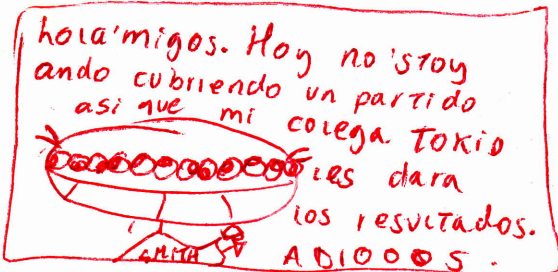 hola'migos. Hoy no 'stoy
ando cubriendo un partido
asi que mi colega TOKIO
les dara
los resultados.
ADIOOOS.